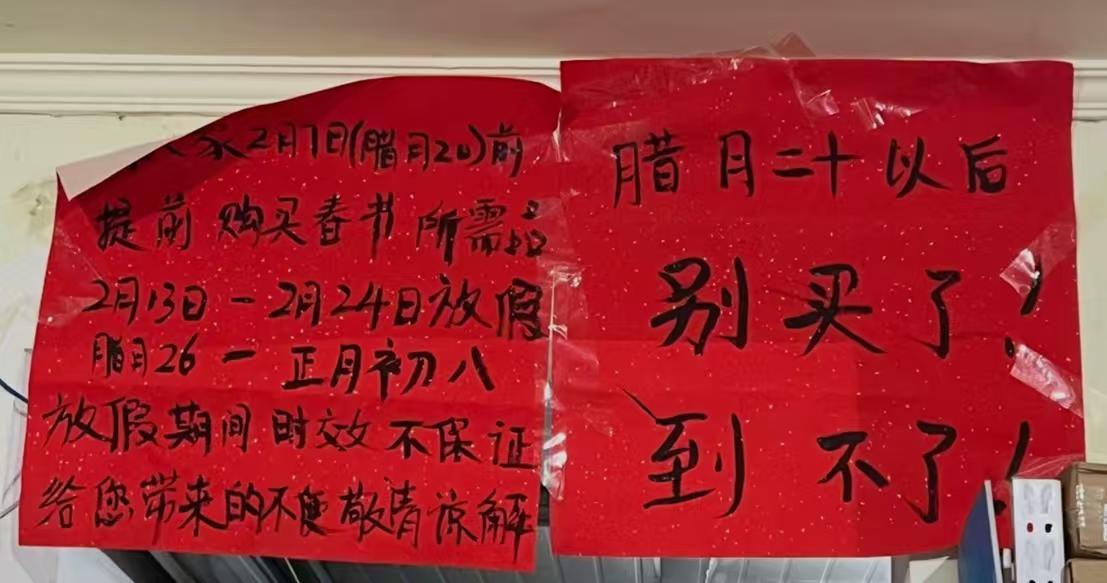 大家2月7日(腊月20)前
提前购买春节所需品
2月13日－2月24日放假
腊月26－正月初八
放假期间时效不保证
给您带来的不便敬请谅解
腊月二十以后
别买了!
到不了!